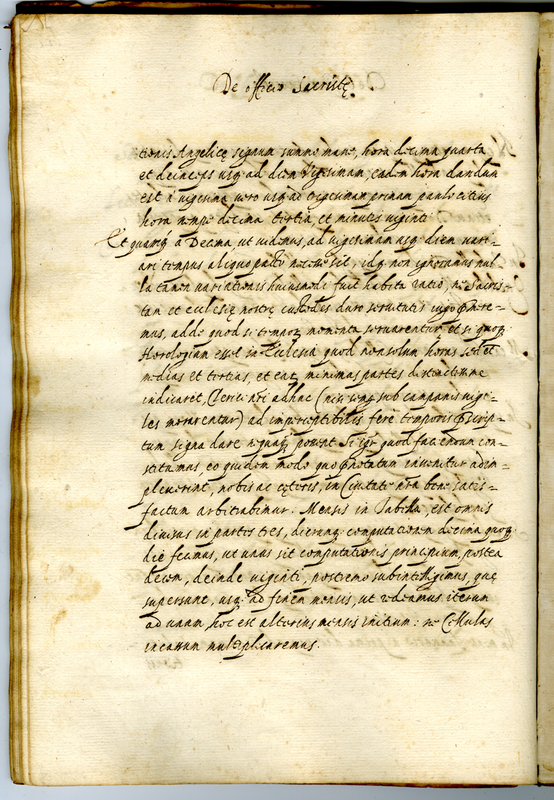 De officio Sacristę.
tionis Angelicę signum summo mane, hora decima quarta
et deinceps usq; ad diem Vigesimam, eadem hora dandum
est à vigesima vero usq; ac trigesimam primam paulo citius
hora nempe decima tertia et minutis viginti
Et quamq; à Decima, ut uidimus, ad uigesimam usq; diem uari-
ari tempus aliquo pacto necesse sit, idq; non ignoramus nul-
la tamen uariationis huiusmodi fuit habita ratio, ne Sacris-
tam et ecclesię nostrę custodes duro seruitutis iugo p̄mere-
mus, adde quod si tempoꝝ momenta seruarentur, et si quoq;
Horologium esset in Ecclesia quod non solum horas sed et
medias et tertias, et eaꝝ minimas partes distinctissime
indicaret, Clerici nr̄i adhuc (nisi semꝑ sub campanis uigi-
les morarentur) ad imperceptibilis fere temporis p̄scrip-
tum signa dare nequaq; possent Si igr̄ quod faciendum con-
stituimus eo quidem modo quo p̄notatum inuenitur adim-
pleuerint, nobis ac cęteris, in Ciuitate non bene satis-
factum arbitrabimur. Mensis in Tabella, est omnis
diuisus in partes tres, dierumq; computationem decima quoq;
die fecimus, ut unus sit computationis principium, postea
decem, deinde uiginti, postremo subintelligimus, quę
supersunt, usq; ad finem mensis, ut redeamus iterum
ad unam, hoc est alterius mensis initium: ne Cellulas
incassum multiplicaremus.